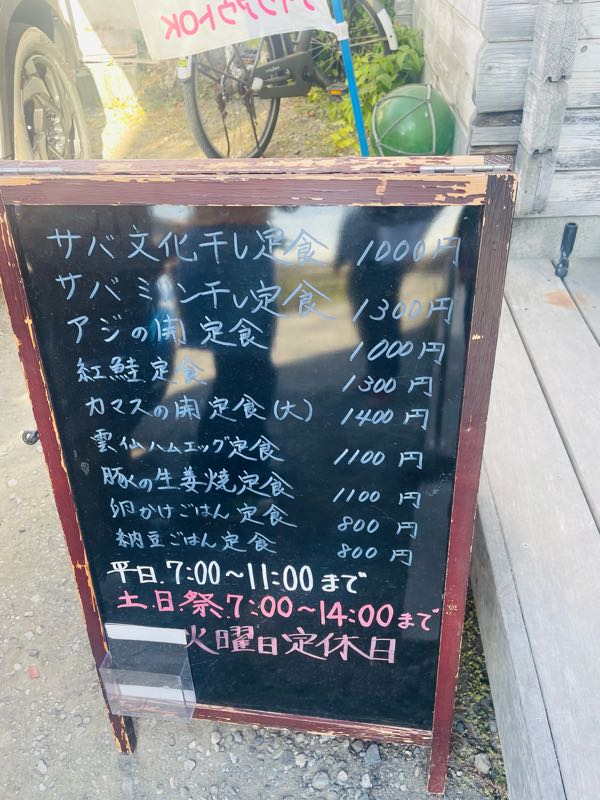 テイクアウトOK
サバ文化干し定食 1000円
サバミリン干し定食 1300円
アジの開定食 1000円
紅鮭定食 1300円
カマスの開定食(大) 1400円
雲仙ハムエッグ定食 1100円
豚の生姜焼定食 1100円
卵かけごはん定食 800円
納豆ごはん定食 800円
平日.7:00~11:00まで
土.日祭.7:00~14:00まで
火曜日定休日